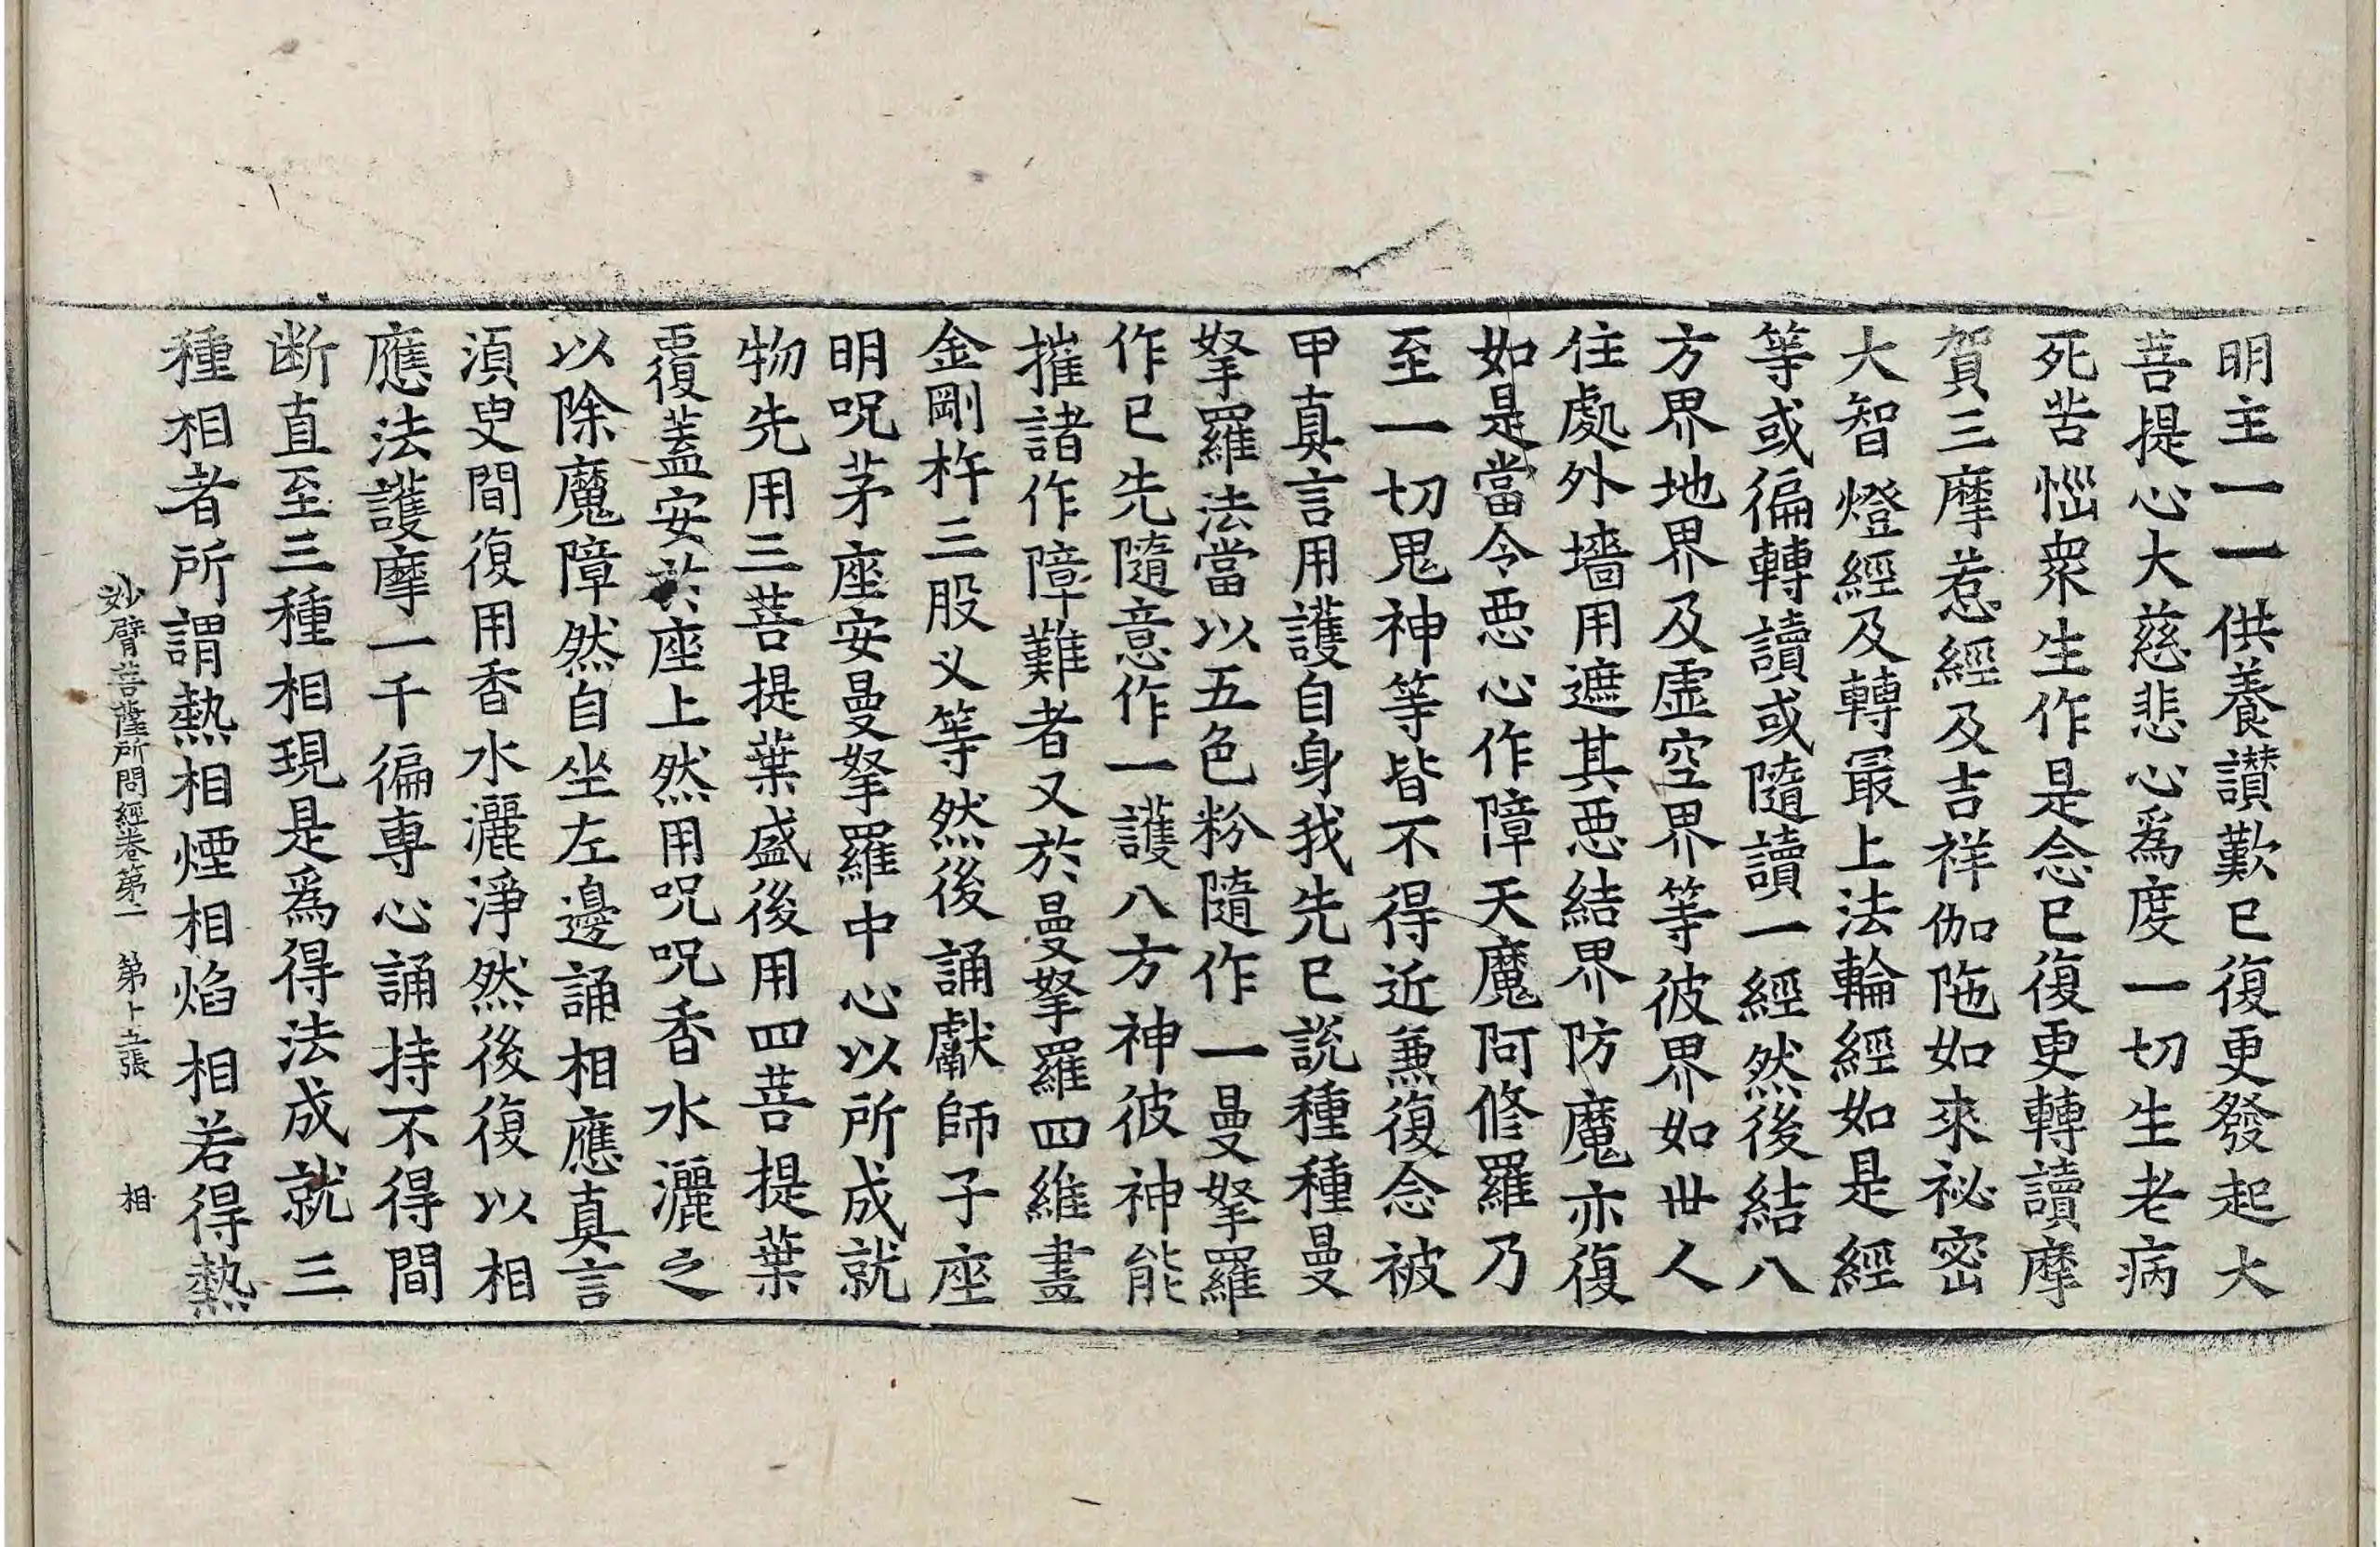 明主一一供養讃歎已復更發起大
菩提心大慈悲心爲度一切生老病
死苦惱衆生作是念已復更轉讀摩
賀三摩惹經及吉祥伽陁如來祕密
大智燈經及轉最上法輪經如是經
等或徧轉讀或隨讀一經然後結八
方界地界及虛空界等彼界如世人
住處外墻用遮其惡結界防魔亦復
如是當令惡心作障天魔阿修羅乃
至一切鬼神等皆不得近兼復念被
甲真言用護自身我先已説種種曼
拏羅法當以五色粉隨作一曼拏羅
作已先隨意作一護八方神彼神能
摧諸作障難者又於曼拏羅四維畫
金剛杵三股叉等然後誦獻師子座
明呪茅座安曼拏羅中心以所成就
物先用三菩提葉盛後用四菩提葉
覆蓋安於座上然用呪呪香水灑之
以除魔障然自坐左邊誦相應真言
湏臾間復用香水灑淨然後復以相
應法護摩一千徧專心誦持不得間
断直至三種相現是爲得法成就三
種相者所謂熱相煙相焰相若得熱
妙臂菩薩所問經卷第一 第十五張 相